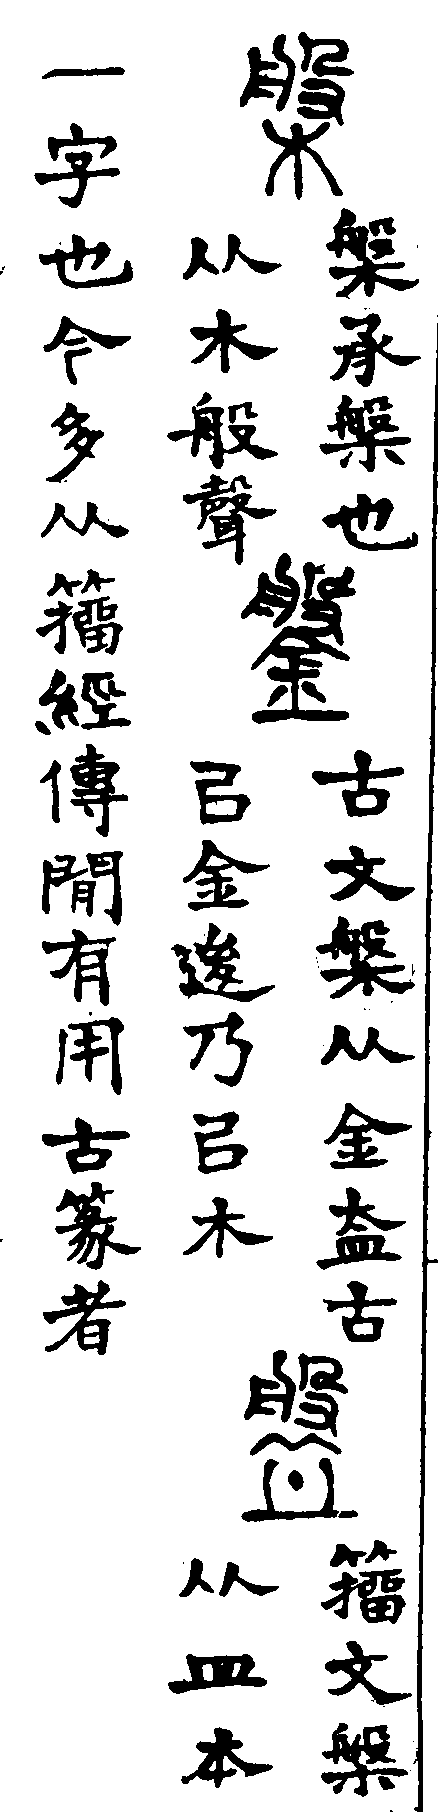 槃
槃承槃也
从木般聲
鎜
古文槃从金盇古
㠯金後乃㠯木
盤
籒文槃
从皿本
一字也今多从籒經傳閒有用古篆者